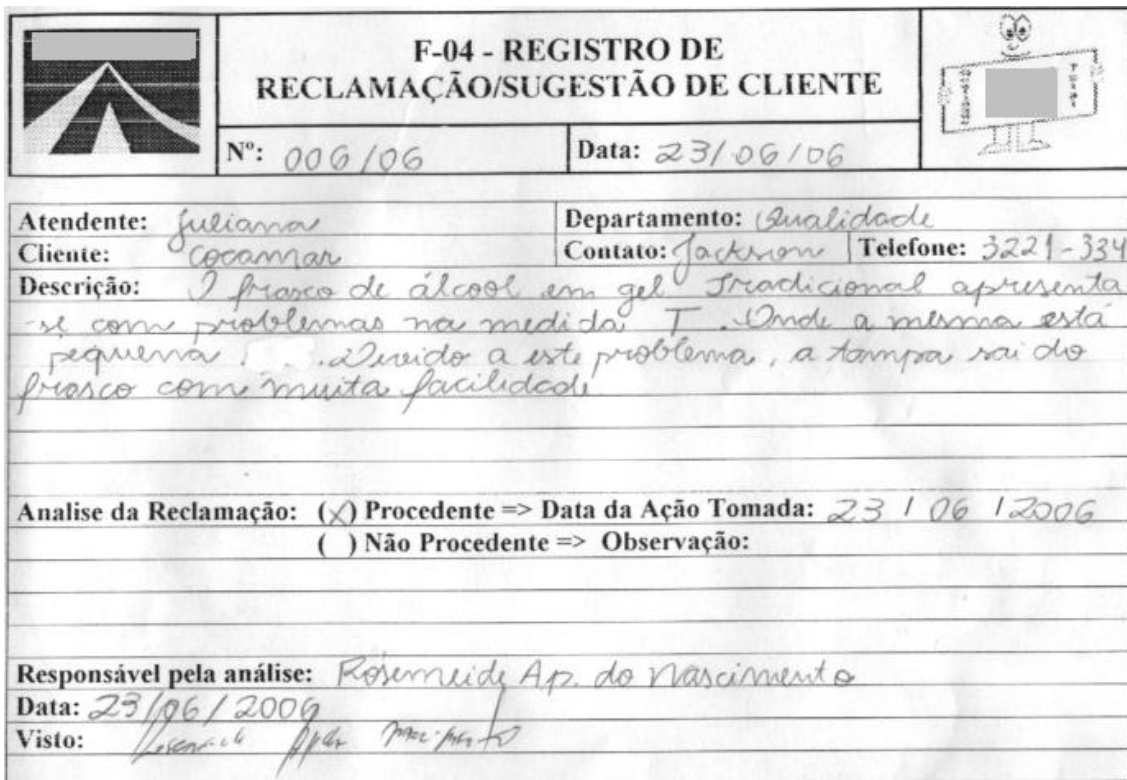 F-04 - REGISTRO DE
RECLAMAÇÃO/SUGESTÃO DE CLIENTE
Nº: 006/06 Data: 23/06/06
Atendente: Juliana Departamento: Qualidade
Cliente: Cocamar Contato: Jackson Telefone: 3221-334
Descrição: O frasco de álcool em gel Tradicional apresenta
-se com problemas na medida T. Onde a mesma está
pequena . Devido a este problema, a tampa sai do
frasco com muita facilidade.
Analise da Reclamação: (X) Procedente => Data da Ação Tomada: 23 / 06 / 2006
( ) Não Procedente => Observação:
Responsável pela análise: Rosemeide Ap. do Nascimento
Data: 23/06/2006
Visto: